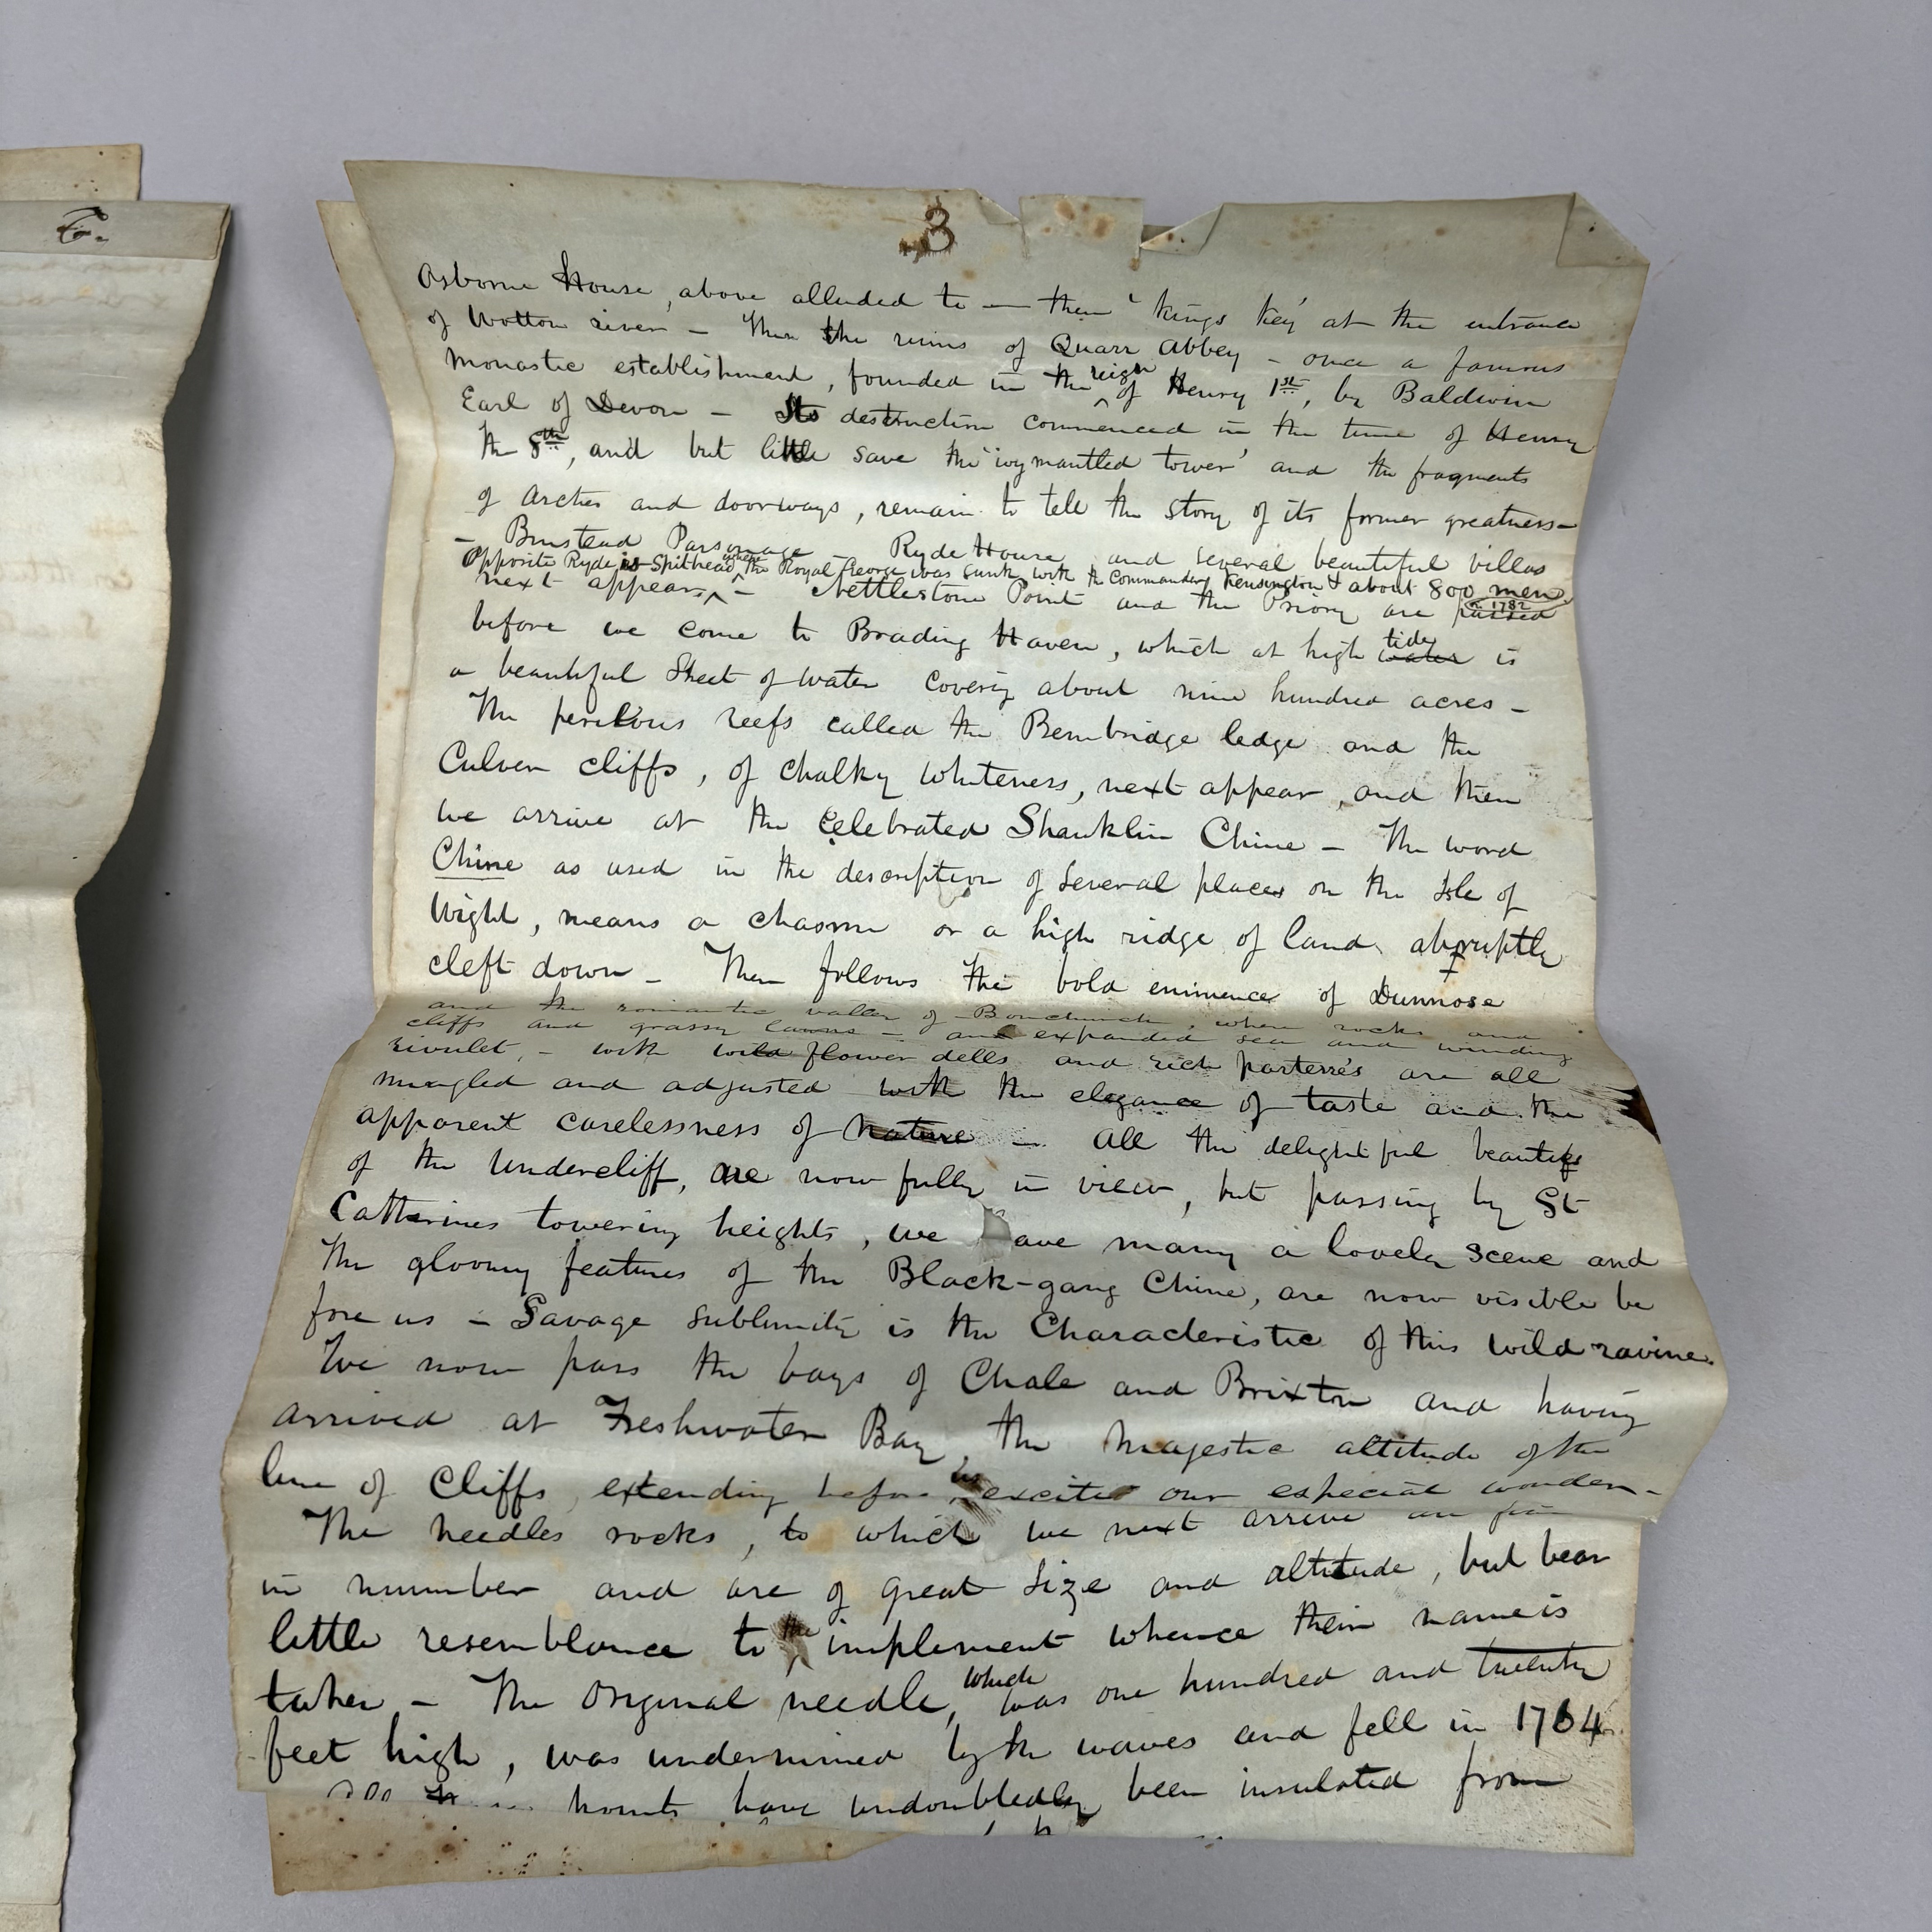 To.
3
Osborne House, above alluded to — then 'Kings Key' at the entrance
of Wotton river — Then the ruins of Quarr Abbey — once a famous
monastic establishment, founded in the reign of Henry 1st, by Baldwin
Earl of Devon — Its destruction commenced in the time of Henry
the 8th, and but little save the 'ivymantled tower' and the fragments
of arches and doorways, remain to tell the story of its former greatness —
— Binstead Parsonage — Ryde House and several beautiful villas
Opposite Ryde is Spithead where the Royal George was sunk with the Commander Kensington & about 800 men
in 1782
next appear — Nettlestone Point and the Priory are passed
before we come to Brading Haven, which at high water tide is
a beautiful Sheet of water covering about nine hundred acres —
The perilous reefs called the Bembridge ledge and the
Culver cliffs, of chalky whiteness, next appear, and then
we arrive at the Celebrated Shanklin Chine — The word
Chine as used in the description of several places on the Isle of
Wight, means a chasm or a high ridge of land abruptly
cleft down — Then follows the bold eminence of Dunnose
and the romantic valley of Bonchurch, where rocks and
cliffs and grassy lawns — and expanded sea and winding
rivulet, — with wild flower dells and rich parterre's are all
mingled and adjusted with the elegance of taste and the
apparent carelessness of nature — All the delightful beauties
of the Undercliff, are now fully in view, but passing by St
Catherines towering heights, we have many a lovely scene and
the gloomy features of the Black-gang Chine, are now visible be
fore us — Savage sublimity is the Characteristic of this wild ravine.
We now pass the bays of Chale and Brixton and having
arrived at Freshwater Bay, the majestic altitude of the
line of Cliffs, extending before us excites our especial wonder —
The needles rocks, to which we next arrive are five
in number and are of great size and altitude, but bear
little resemblance to the implement whence their name is
taken — The Original needle, which was one hundred and twenty
feet high, was undermined by the waves and fell in 1764.
have undoubtedly been insulated from